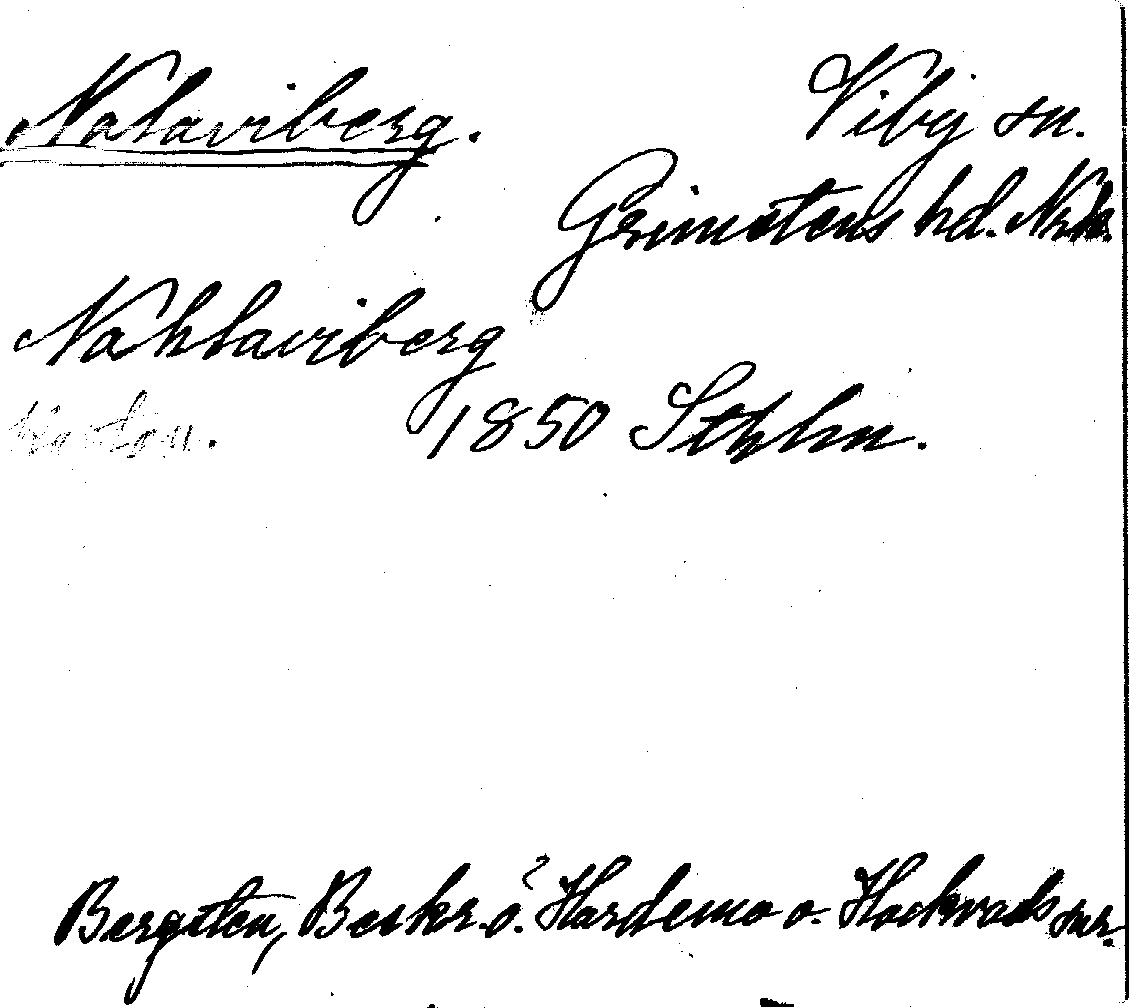 Nalaviberg. Viby sn.
Grimstens hd. Nrk.
Nahlaviberg
1850 Sthlm.
Bergsten, Beskr. ö. Hardemo o. Hackvads snr.